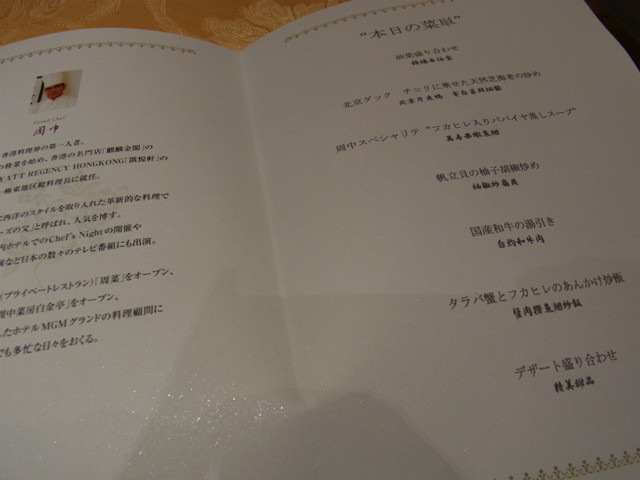 Grand Chef
周中
香港料理界の第一人者。
の修業を始め、香港の名門店「麒麟金閣」の
YATT REGENCY HONGKONG「凱悦軒」の
極東地区総料理長に就任。
西洋のスタイルを取り入れた革新的な料理で
ズの父」と呼ばれ、人気を博す。
内ホテルでのChef's Nightの開催や
演など日本の数々のテレビ番組にも出演。
(プライベートレストラン)「周菜」をオープン、
周中菜房白金亭」をオープン、
したホテルMGMグランドの料理顧問に
でも多忙な日々をおくる。
"本日の菜単"
前菜盛り合わせ
北京ダック チェリに乗せた天然芝海老の炒め
北京片皮鴨
周中スペシャリテ "フカヒレ入りパパイヤ蒸しスープ"
萬寿果燉魚翅
帆立貝の柚子胡椒炒め
柚椒炒扇貝
国産和牛の湯引き
白灼和牛肉
タラバ蟹とフカヒレのあんかけ炒飯
蟹肉撈魚翅炒飯
デザート盛り合わせ
精美甜品